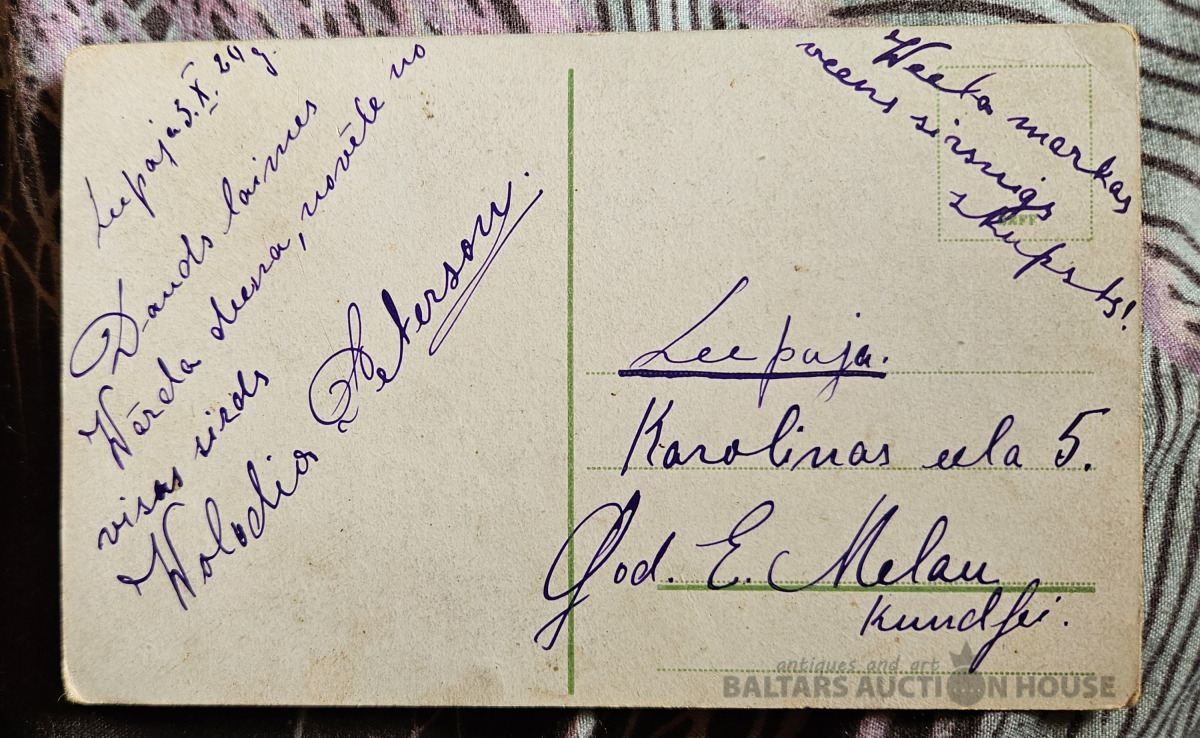 Leepajā 3.X.24g.
Dauds laimes
Wārda deena, novēle no
visas sirds
Wolodia Peterson.
Weeta markas
veens sirsnigs
skupsts!
Leepaja.
Karolinas eela 5.
God. E. Melau
kundsei.
antiques and art
BALTARS AUCTION HOUSE